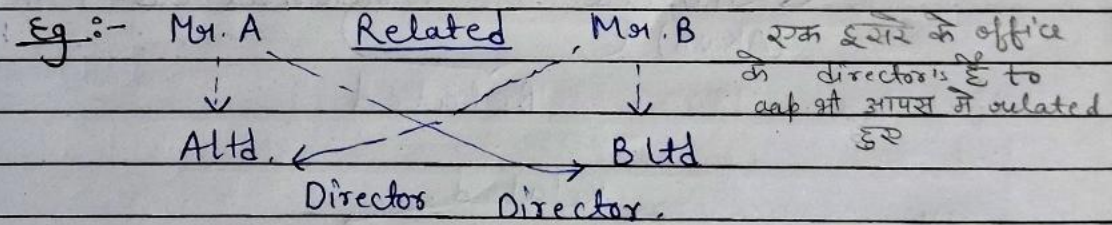 Eg :- Mr. A Related Mr. B एक दूसरे के office
के director's हैं to
aap भी आपस में related
हुए
A Ltd. B Ltd
Director Director.